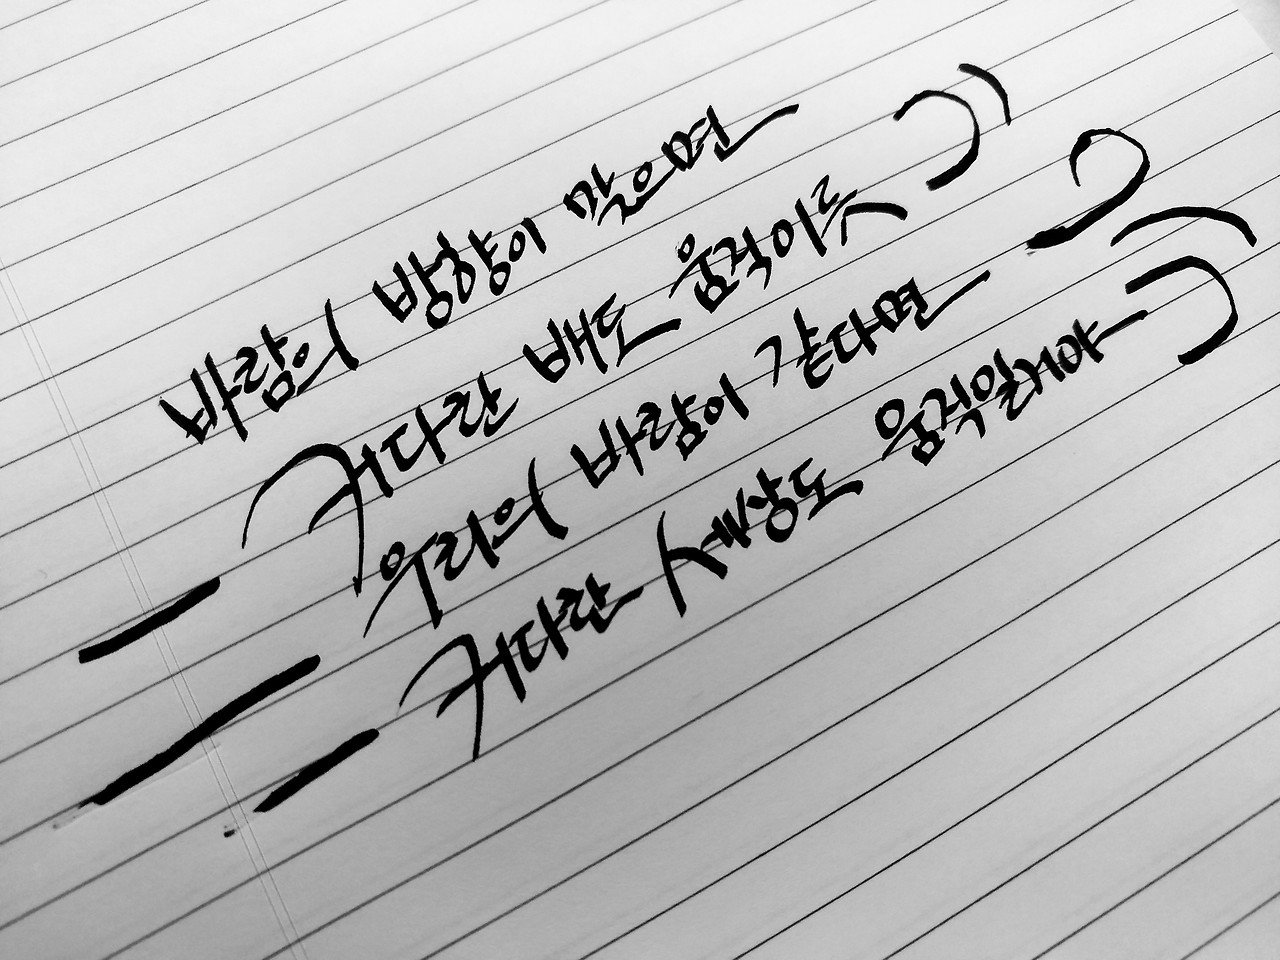 바람의 방향이 맞으면
커다란 배도 움직이듯
우리의 바람이 같다면
커다란 세상도 움직일거야